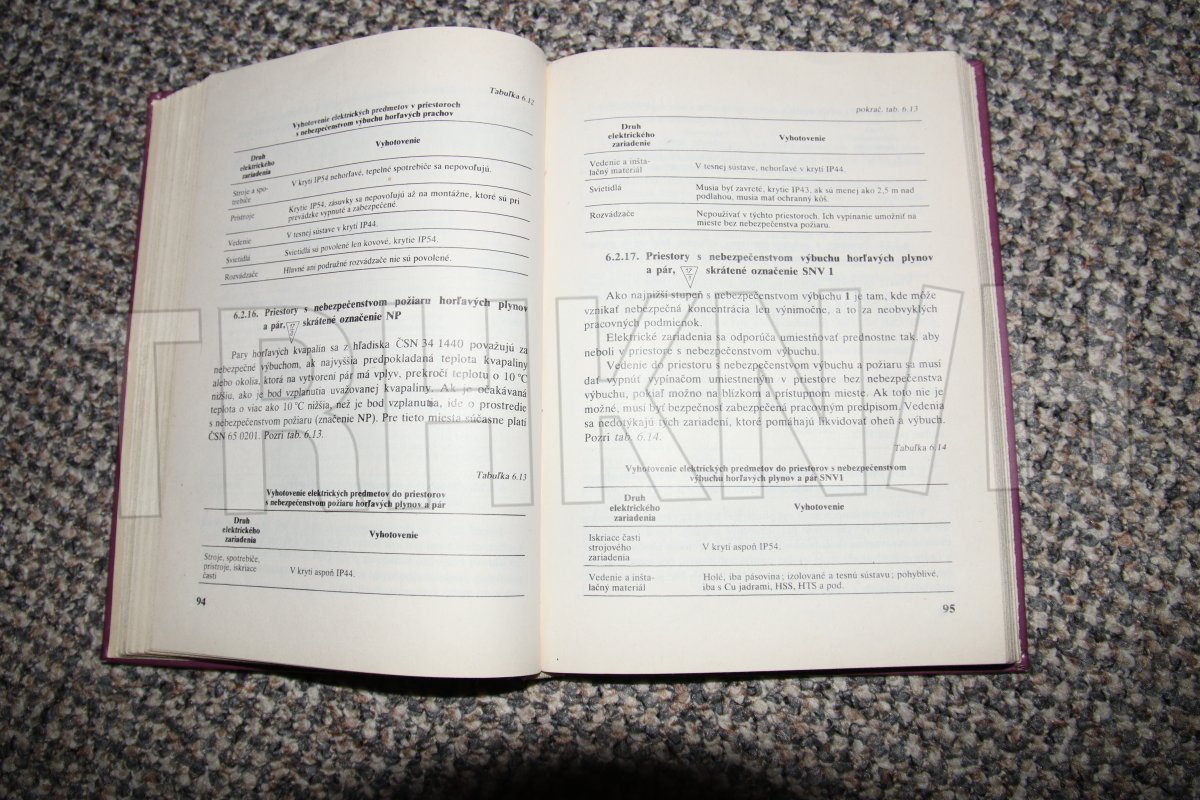 Tabuľka 6.12
Vyhotovenie elektrických predmetov v priestoroch
s nebezpečenstvom výbuchu horľavých prachov
Druh
elektrického
zariadenia
Vyhotovenie
Stroje a spo-
trebiče
V krytí IP54 nehorľavé, tepelné spotrebiče sa nepovoľujú.
Prístroje
Krytie IP54, zásuvky sa nepovoľujú až na montážne, ktoré sú pri
prevádzke vypnuté a zabezpečené.
Vedenie
V tesnej sústave v krytí IP44.
Svietidlá
Svietidlá sú povolené len kovové, krytie IP54.
Rozvádzače
Hlavné ani podružné rozvádzače nie sú povolené.
6.2.16. Priestory s nebezpečenstvom požiaru horľavých plynov
a pár, skrátené označenie NP
Pary horľavých kvapalín sa z hľadiska ČSN 34 1440 považujú za
nebezpečné výbuchom, ak najvyššia predpokladaná teplota kvapaliny
alebo okolia, ktorá na vytvorení pár má vplyv, prekročí teplotu o 10 °C
nižšiu, ako je bod vzplanutia uvažovanej kvapaliny. Ak je očakávaná
teplota o viac ako 10 °C nižšia, než je bod vzplanutia, ide o prostredie
s nebezpečenstvom požiaru (značenie NP). Pre tieto miesta súčasne platí
ČSN 65 0201. Pozri tab. 6.13.
Tabuľka 6.13
Vyhotovenie elektrických predmetov do priestorov
s nebezpečenstvom požiaru horľavých plynov a pár
Druh
elektrického
zariadenia
Vyhotovenie
Stroje, spotrebiče,
prístroje, iskriace
časti
V krytí aspoň IP44.
94
pokrač. tab. 6.13
Druh
elektrického
zariadenia
Vyhotovenie
Vedenie a inšta-
lačný materiál
V tesnej sústave, nehorľavé v krytí IP44.
Svietidlá
Musia byť zavreté, krytie IP43, ak sú menej ako 2,5 m nad
podlahou, musia mať ochranný kôš.
Rozvádzače
Nepoužívať v týchto priestoroch. Ich vypínanie umožniť na
mieste bez nebezpečenstva požiaru.
6.2.17. Priestory s nebezpečenstvom výbuchu horľavých plynov
a pár, skrátené označenie SNV 1
Ako najnižší stupeň s nebezpečenstvom výbuchu 1 je tam, kde môže
vznikať nebezpečná koncentrácia len výnimočne, a to za neobvyklých
pracovných podmienok.
Elektrické zariadenia sa odporúča umiestňovať prednostne tak, aby
neboli v priestore s nebezpečenstvom výbuchu.
Vedenie do priestoru s nebezpečenstvom výbuchu a požiaru sa musí
dať vypnúť vypínačom umiestneným v priestore bez nebezpečenstva
výbuchu, pokiaľ možno na blízkom a prístupnom mieste. Ak toto nie je
možné, musí byť bezpečnosť zabezpečená pracovným predpisom. Vedenia
sa nedotýkajú tých zariadení, ktoré pomáhajú likvidovať oheň a výbuch.
Pozri tab. 6.14.
Tabuľka 6.14
Vyhotovenie elektrických predmetov do priestorov s nebezpečenstvom
výbuchu horľavých plynov a pár SNV1
Druh
elektrického
zariadenia
Vyhotovenie
Iskriace časti
strojového
zariadenia
V krytí aspoň IP54.
Vedenie a inšta-
lačný materiál
Holé, iba pásovina; izolované a tesnú sústavu; pohyblivé,
iba s Cu jadrami, HSS, HTS a pod.
95